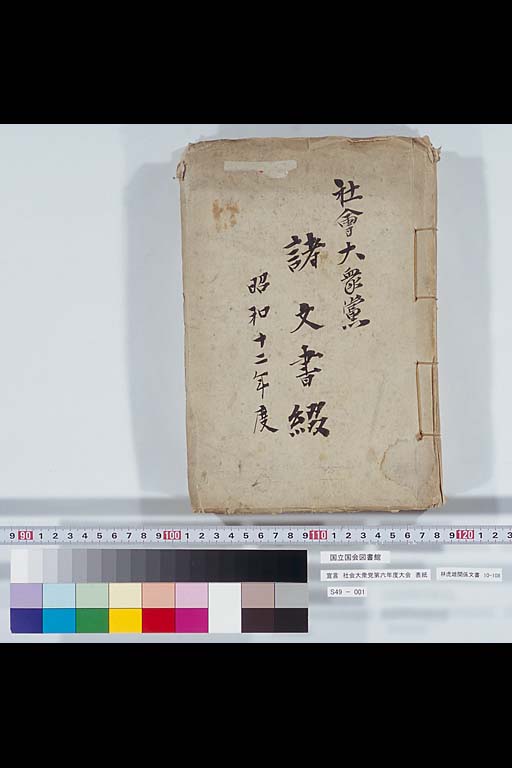 社會大衆黨
諸文書綴
昭和十二年度
9 90 1 2 3 4 5 6 7 8 9 100 1 2 3 4 5 6 7 8 9 110 1 2 3 4 5 6 7 8 9 120 1 2 3
国立国会図書館
宣言 社会大衆党第六年度大会 表紙 林虎雄関係文書 10-108
S49 - 001